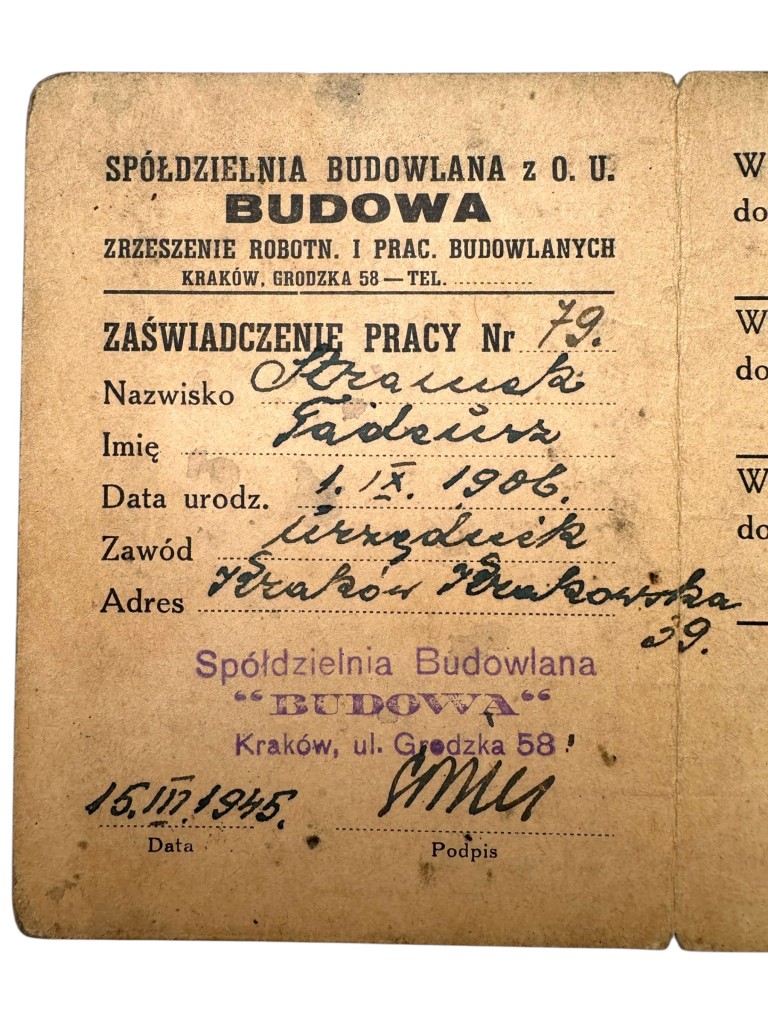 SPÓŁDZIELNIA BUDOWLANA z O. U.
BUDOWA
ZRZESZENIE ROBOTN. I PRAC. BUDOWLANYCH
KRAKÓW, GRODZKA 58 — TEL. ............
ZAŚWIADCZENIE PRACY Nr 79.
Nazwisko
Imię Tadeusz
Data urodz. 1. IX. 1906.
Zawód urzędnik
Adres Kraków Krakowska
39.
Spółdzielnia Budowlana
"BUDOWA"
Kraków, ul. Grodzka 58
15.III.1945.
Data
Podpis
W
do
W
do
W
do